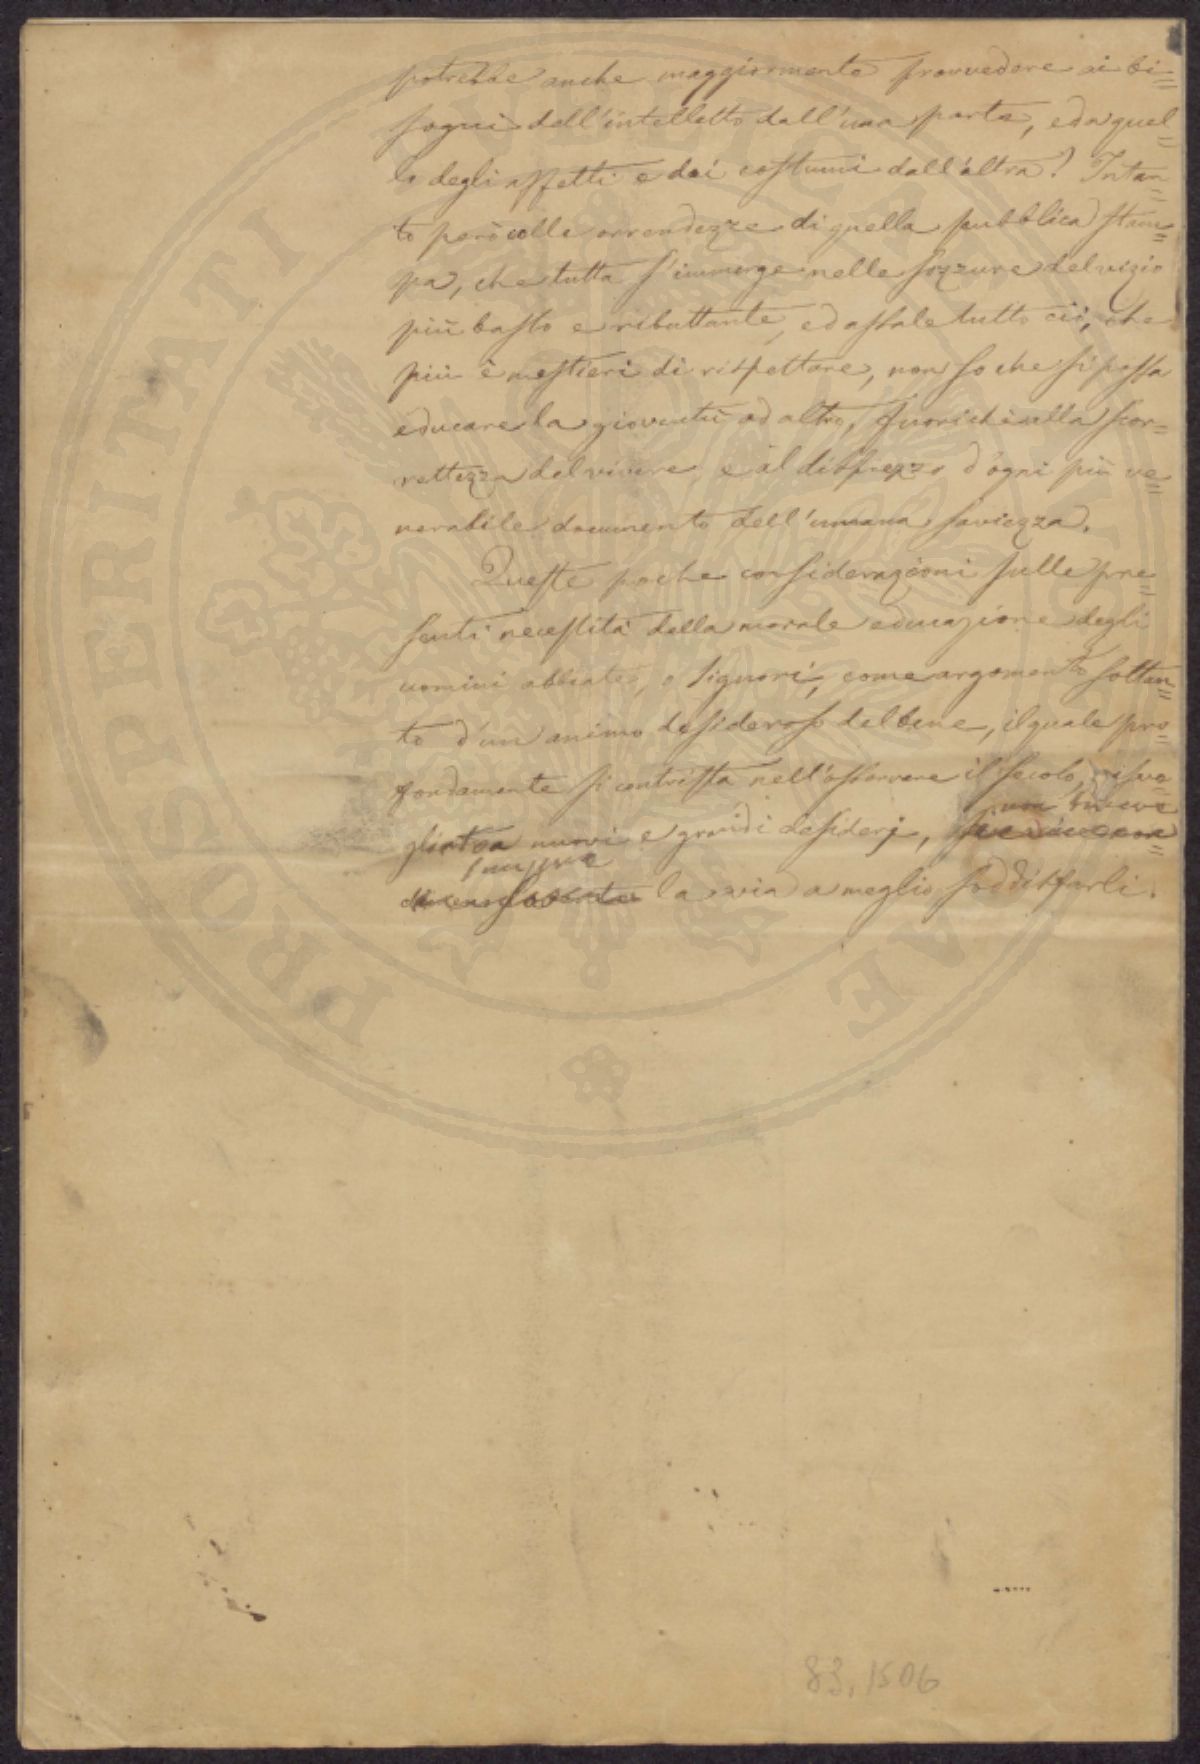 potrebbe anche maggiormente provvedere ai bi=
sogni dell'intelletto dall'una parte, ed a quel=
lo degli affetti e dei costumi dall'altra? Intan=
to però colle orrendezze di quella pubblica stam=
pa, che tutta s'immerge nelle sozzure del vizio
più basso e ributtante, ed assale tutto ciò, che
più è mestieri di rispettare, non so che si possa
educare la gioventù ad altro, fuorichè alla scor=
rettezza del vivere, e al disprezzo d'ogni più ve=
nerabile documento dell'umana saviezza.
Queste poche considerazioni sulle pre=
senti necessità della morale educazione degli
uomini abbiate, o Signori, come argomento soltan=
to d'un animo desideroso del bene, il quale pro=
fondamente si contrista nell'osservare il secolo, risve
gliato a nuovi e grandi desiderj, non
sempre
la via a meglio soddisfarli.
83.1506
PROSPERITATI PVBLICAE